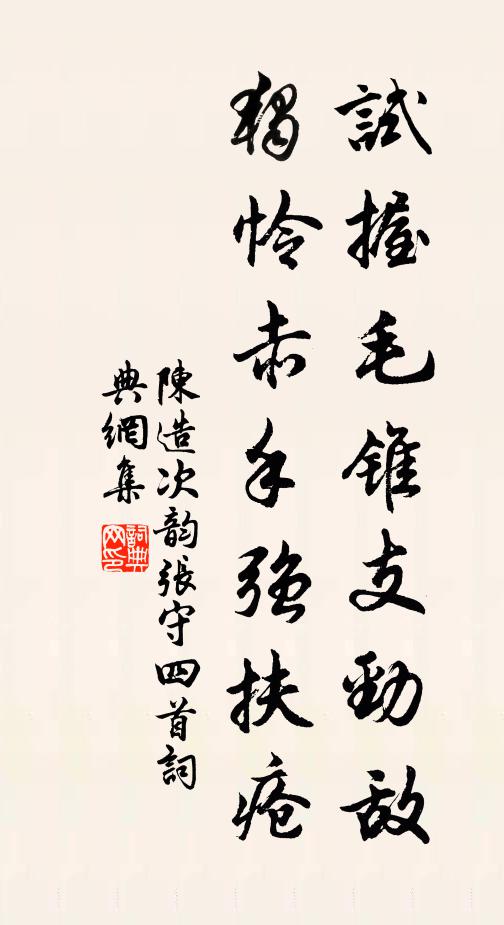 試握毛錐支勁敵
獨怜赤手強扶瘡
陳造次韵張守四首詞
典網集
詞典網印